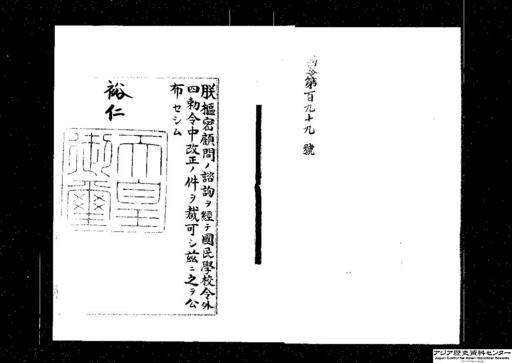 勅令第百九十九號
朕樞密顧問ノ諮詢ヲ經テ國民學校令外
四勅令中改正ノ件ヲ裁可シ茲ニ之ヲ公
布セシム
裕仁
天皇御璽
アジア歴史資料センター
Japan Center for Asian Historical Records